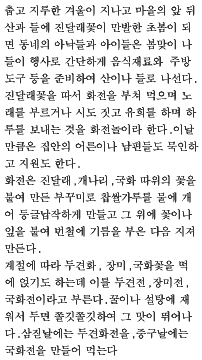 춥고 지루한 겨울이 지나고 마을의 앞 뒤
산과 들에 진달래꽃이 만발한 초봄이 되
면 동네의 아낙들과 아이들은 봄맞이 나
들이 행사로 간단하게 음식재료와 주방
도구 등을 준비하여 산이나 들로 나선다.
진달래꽃을 따서 화전을 부쳐 먹으며 노
래를 부르거나 시도 짓고 유희를 하며 하
루를 보내는 것을 화전놀이라 한다.이날
만큼은 집안의 어른이나 남편들도 묵인하
고 지원도 한다.
화전은 진달래,개나리,국화 따위의 꽃을
붙여 만든 부꾸미로 찹쌀가루를 물에 개
어 둥글납작하게 만들고 그 위에 꽃이나
잎을 붙여 번철에 기름을 부은 다음 지져
만든다.
계절에 따라 두견화, 장미,국화꽃을 떡
에 얹기도 하는데 이를 두견전,장미전,
국화전이라고 부른다.꿀이나 설탕에 재
워서 두면 쫄깃쫄깃하여 그 맛이 뛰어나
다.삼짇날에는 두견화전을,중구날에는
국화전을 만들어 먹는다